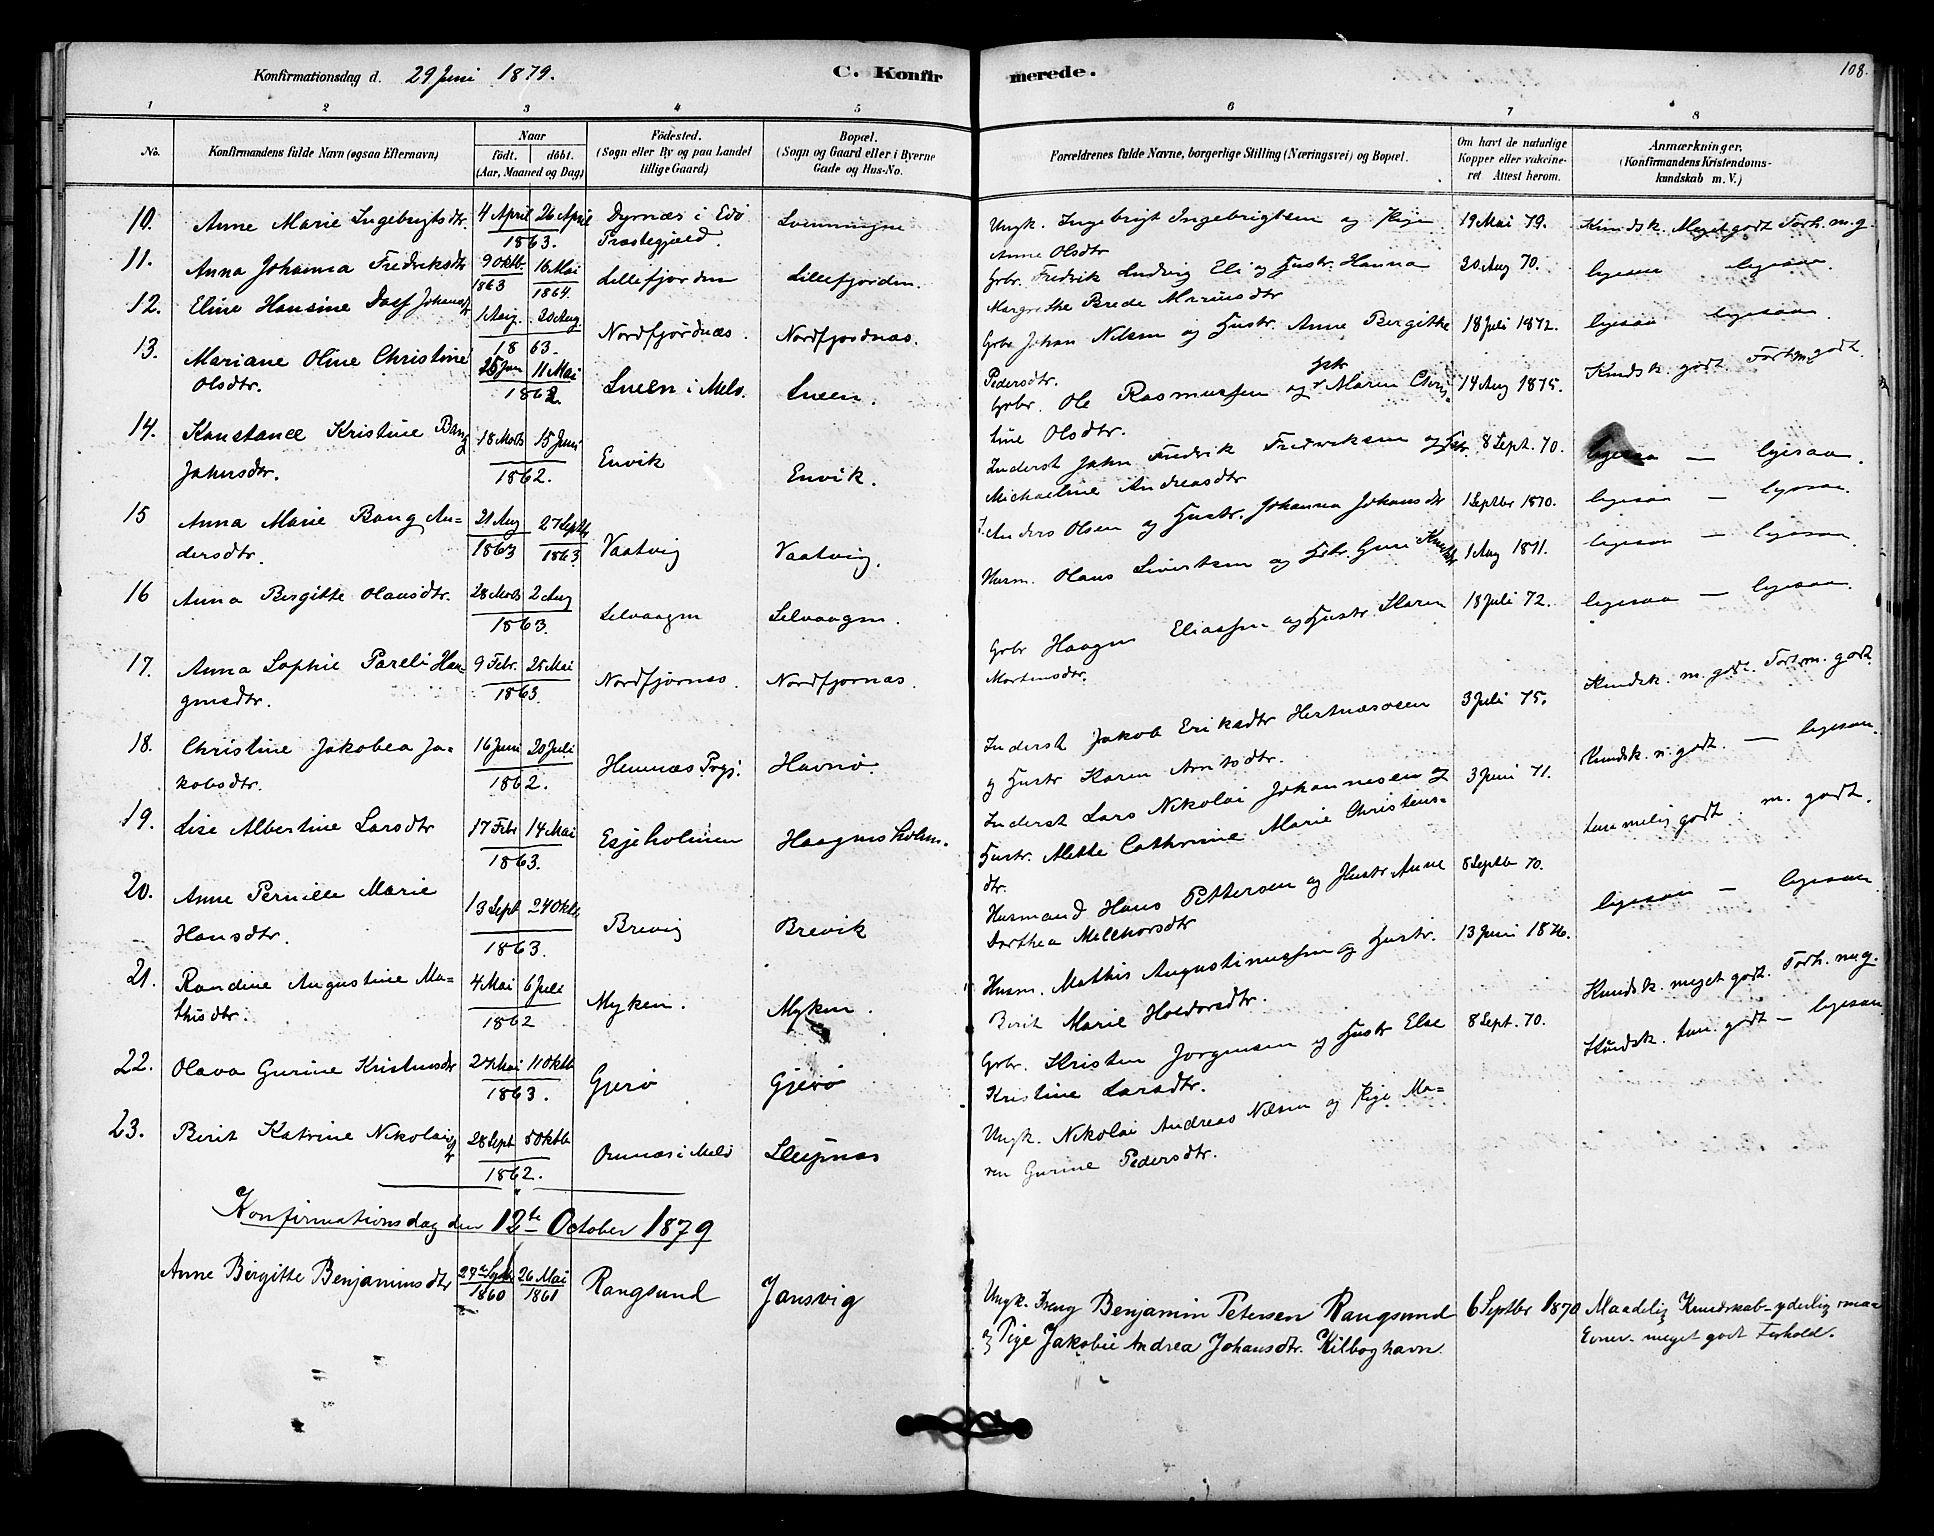 Konfirmationsdag d. 29 Juni 1879. C. Konfirmerede. 108.
1 2 3 4 5 6 7 8
No. Konfirmandens fulde Navn (ogsaa Efternavn) Naar födt. döbt. (Aar, Maaned og Dag) Födested. (Sogn eller By og paa Landet tillige Gaard) Bopæl. (Sogn og Gaard eller i Byerne Gade og Hus-No. Forældrenes fulde Navne, borgerlige Stilling (Næringsvei) og Bopæl. Om havt de naturlige Kopper eller vakcineret Attest herom. Anmærkninger. (Konfirmandens Kristendomskundskab m. V.)
10. Anne Marie Ingebrigtsdtr. 4 April 26 April 1863. Dyrnæs i Edö Præstegjæld. Ungk. Ingebrigt Ingebrigtsen og Pige Anne Olsdtr 19 Mai 79. Kundsk. Meget godt Forh. m. g.
11. Anna Johanna Fredriksdtr 9 Oktb. 1863 16 Mai 1864. Lillefjorden Lillefjorden. Grbr. Fredrik Ludvig Eli og Hustr. Hanna Margrethe Brede Mariusdtr 20 Aug 70. ligesaa ligesaa.
12. Eline Hansine Dass Johansdtr 1 Aug. 20 Aug 1863. Nordfjordnæs. Nordfjordnæs. Grbr Johan Nilsen og Hustr. Anne Bergitte Pedersdtr. 18 Juli 1872. ligesaa ligesaa.
13. Mariane Oline Christine Olsdtr. 25 Jan 11 Mai 1862. Sneen i Melö. Sneen. Grbr. Ole Rasmussen og Hstr Maren Christine Olsdtr. 14 Aug 1875. Kundsk. godt. Forh. m godt.
14. Konstance Kristine Bang Jahnsdtr. 18 Marts 15 Juni 1862. Envik Envik. Inderst Jahn Fredrik Fredreksen og Hstr. Michaeline Andreasdtr 8 Sept. 70. ligesaa — ligesaa.
15 Anna Marie Bang Andersdtr. 21 Aug 1863 27 Septb 1863 Vaatvig Vaatvig. Anders Olsen og Hustr. Johanna Johansdtr 1 Septbr 1870. ligesaa — ligesaa.
16 Anna Birgitte Olausdtr. 28 Marts 2 Aug 1863. Selvaagen Selvaagen. Husm. Olaus Sivertsen og Hstr. Guri Knudsdtr 1 Aug 1871. ligesaa — ligesaa.
17. Anna Sophie Pareli Haagensdtr. 9 Febr. 25 Mai 1863. Nordfjornæs. Nordfjornæs. Grbr Haagen Eliassen og Hustr Karen Mortensdtr. 18 Juli 72. ligesaa — ligesaa.
18. Christine Jakobea Jakobsdtr. 16 Juni 20 Juli 1862. Hemnæs Prgj. Havnö. Inderst Jakob Eriksdtr Hestnæsosen og Hustr Karen Arntsdtr. 3 Juli 75. Kundsk. m. godt. Forh. m. godt.
19. Lise Albertine Larsdtr 17 Febr 14 Mai 1863. Esjeholmen Haagensholm. Inderst Lars Nikolai Johannesen og Hustr. Mette Cathrine Marie Christensdtr. 3 Juni 71. Kundsk. n. godt. — ligesaa.
20. Anne Pernille Marie Hansdtr. 13 Sept 24 Oktb 1863. Brevig Brevik Husmand Hans Pettersen og Hustr Anne Dorthea Melchorsdtr 8 Septbr 70. temmelig godt. m. godt.
21. Randine Augustine Mathisdtr. 4 Mai 6 Juli 1862 Myken. Myken. Husm. Mathis Augustinussen og Hustr. Berit Marie Holdorsdtr. 13 Juni 1876. ligesaa — ligesaa
22. Olava Gurine Kristensdtr 27 Mai 11 Oktb 1863. Gjerö Gjerö Grbr. Kristen Jørgensen og Hustr Else Kristine Larsdtr. 8 Sept. 70. Kundsk. meget godt. Forh. m. g.
23. Berit Katrine Nikolaidtr 28 Sept 5 Oktb 1862. Ornæs i Melö Sleipnæs Ungk. Nikolai Andreas Nilsen og Pige Maren Gurine Pedersdtr. Kundsk. tem. godt — ligesaa
Konfirmationsdag den 12te October 1879
Anne Birgitte Benjaminsdtr 27de Septb 1860 26 Mai 1861 Rangsund Jansvig Ungk. Dreng Benjamin Petersen Rangsund og Pige Jakobie Andrea Johansdtr. Kilboghavn. 6 Septbr 1870 Maadelig Kundskab - yderlig smaa Evner. meget godt Forhold.